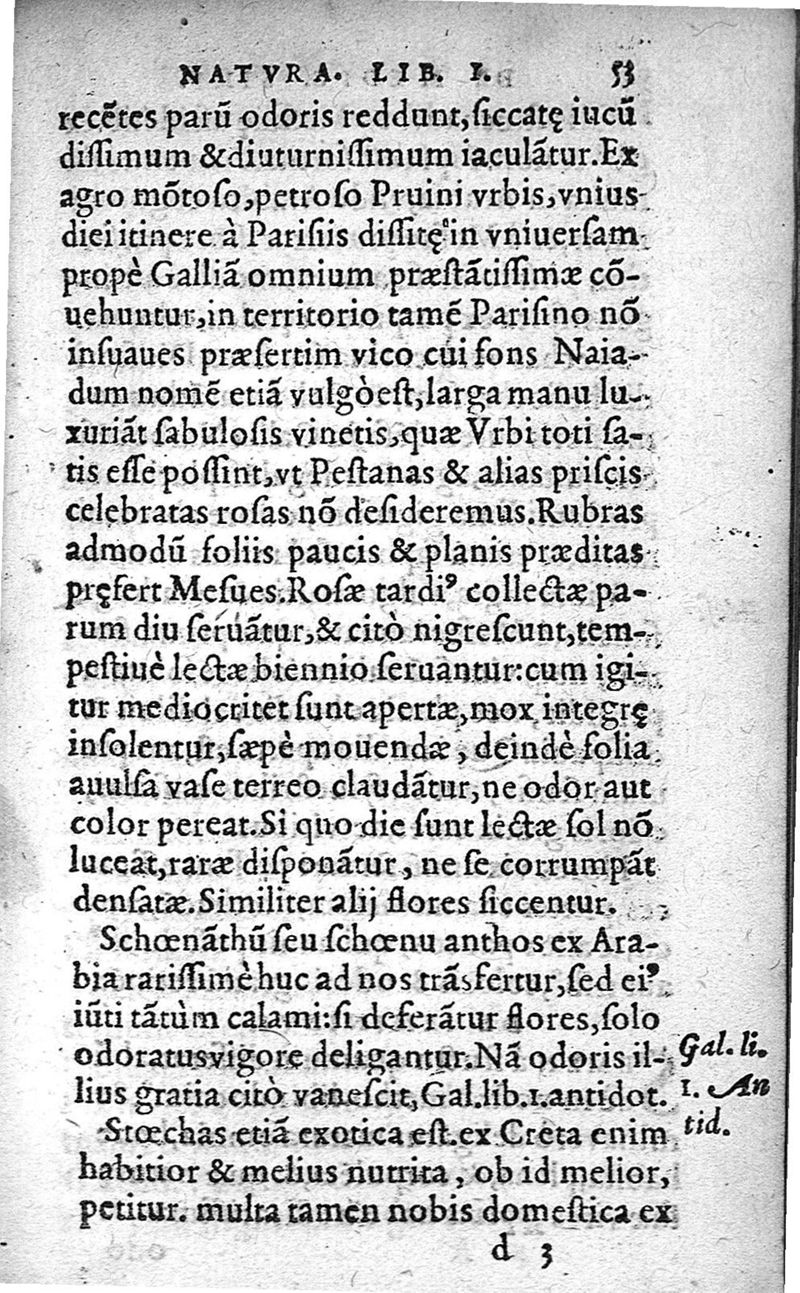 NATVRA. LIB. I. 53
recẽtes parũ odoris reddunt,ſiccatę iucũ
diſſimum &diuturniſſimum iaculãtur.Ex
agro mõtoſo,petroſo Pruini vrbis,vnius
diei itinere à Pariſiis diſſitę in vniuerſam
propè Galliã omnium præſtãtiſſimæ cõ-
uehuntur,in territorio tamẽ Pariſino nõ
inſuaues præſertim vico cui fons Naia-
dum nomẽ etiã vulgò eſt,larga manu lu-
xuriãt ſabuloſis vinetis,quæ Vrbi toti ſa-
tis eſſe poſſint,vt Peſtanas & alias priſcis
celebratas roſas nõ deſideremus.Rubras
admodũ foliis paucis & planis præditas
pręfert Meſues.Roſæ tardiꝰ collectæ pa-
rum diu ſeruãtur,& citò nigreſcunt,tem-
peſtiuè lectæ biennio ſeruantur:cum igi-
tur mediocritet ſunt apertæ,mox integrę
inſolentur,ſæpè mouendæ, deindè folia
auulſa vaſe terreo claudãtur,ne odor aut
color pereat.Si quo die ſunt lectæ ſol nõ
luceat,raræ diſponãtur, ne ſe corrumpãt
denſatæ.Similiter alij flores ſiccentur.
Schœnãthũ ſeu ſchœnu anthos ex Ara-
bia rariſſimè huc ad nos trãsfertur,ſed eiꝰ
iũti tãtùm calami:ſi deferãtur flores,ſolo
odoratus vigore deligantur.Nã odoris il-
lius gratia citò vaneſcit,Gal.lib.1.antidot.
Gal. li.
1. An
tid.
Stœchas etiã exotica eſt.ex Creta enim
habitior & melius nutrita, ob id melior,
petitur. multa tamen nobis domeſtica ex
d 3